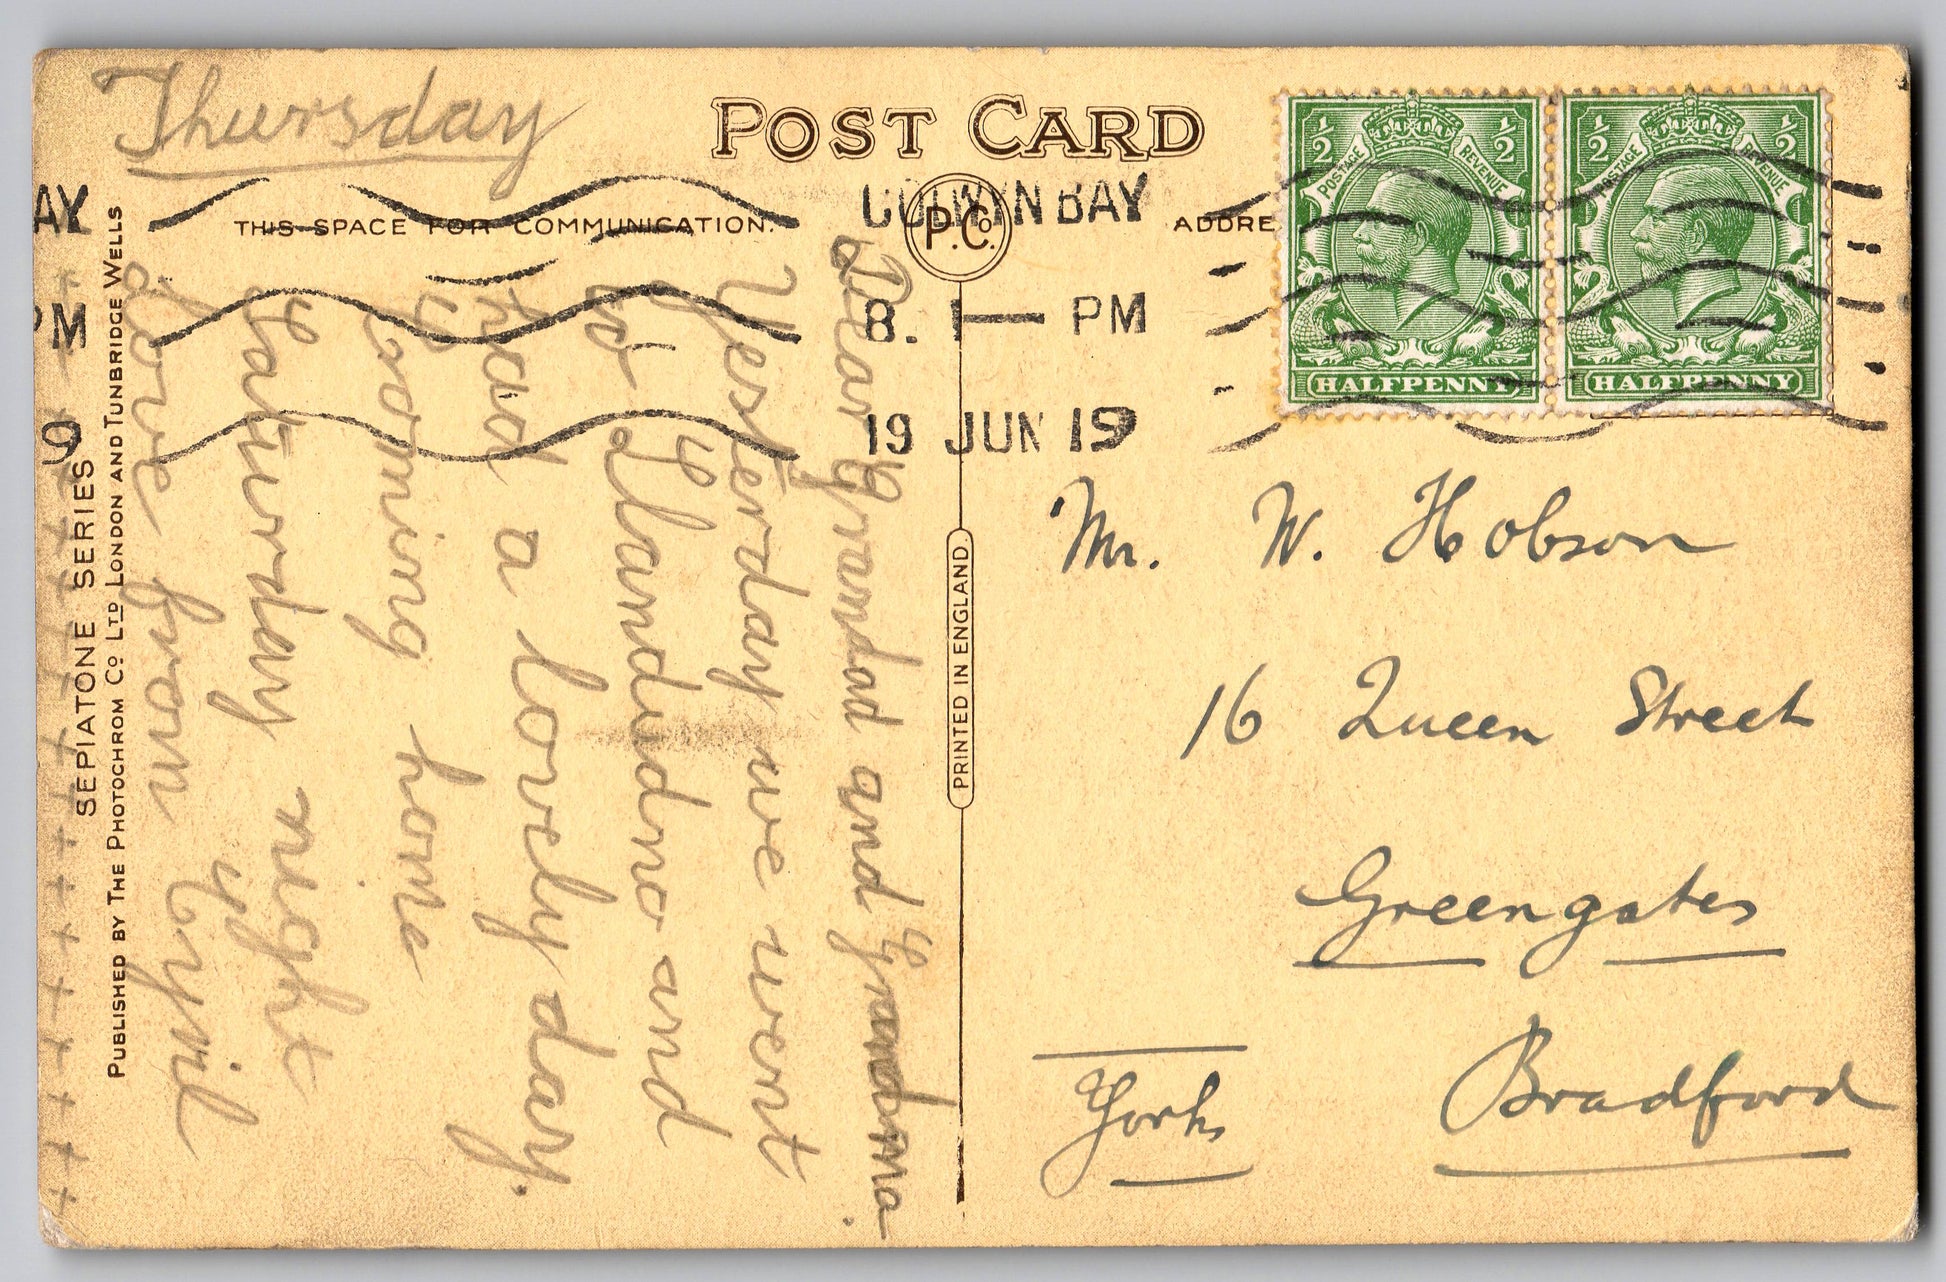 Thursday
POST CARD
THIS SPACE FOR COMMUNICATION.
ADDRE
P. Co.
COLWYN BAY
8. 1— PM
19 JUN 19
AY
PM
9
½ ½
POSTAGE REVENUE
HALFPENNY
½ ½
POSTAGE REVENUE
HALFPENNY
Dear Grandad and Grandma
Yesterday we went
to Llandudno and
had a lovely day.
coming home
Saturday night
Love from Cyril
+ + + + + + + + + + + + + + + + + +
SEPIATONE SERIES
PUBLISHED BY THE PHOTOCHROM CO LTD LONDON AND TUNBRIDGE WELLS
PRINTED IN ENGLAND
Mr. W. Hobson
16 Queen Street
Greengates
Bradford
Yorks